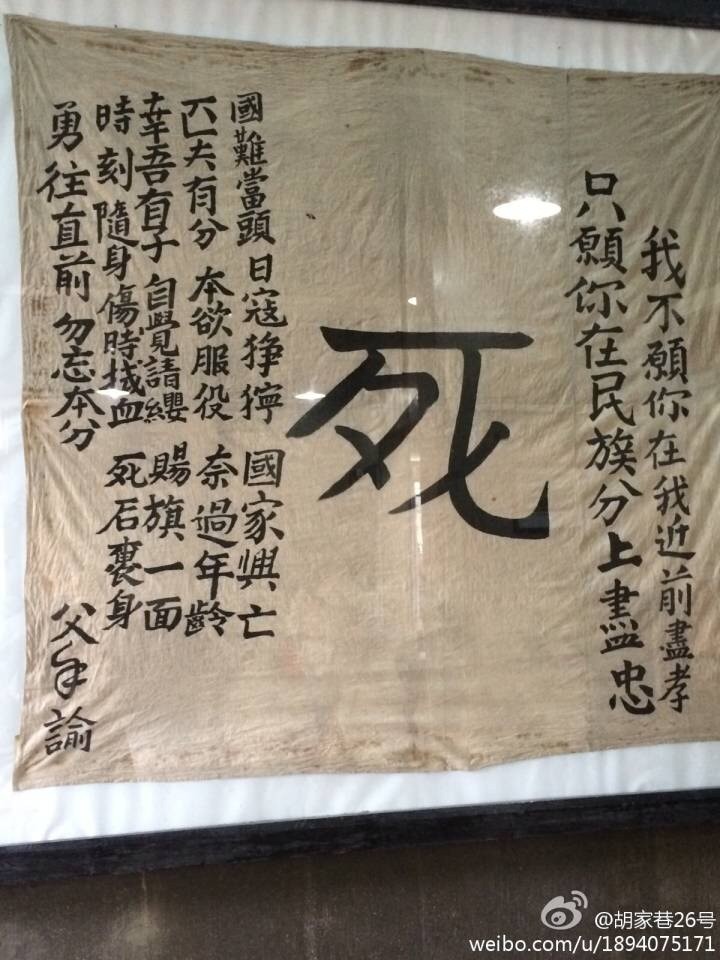 我不願你在我近前盡孝
只願你在民族分上盡忠
死
國難當頭 日寇狰獰 國家興亡
匹夫有分 本欲服役 奈過年齡
幸吾有子 自覺請纓 賜旗一面
時刻隨身 傷時拭血 死后裹身
勇往直前 勿忘本分
父手諭
@胡家巷26号
weibo.com/u/1894075171